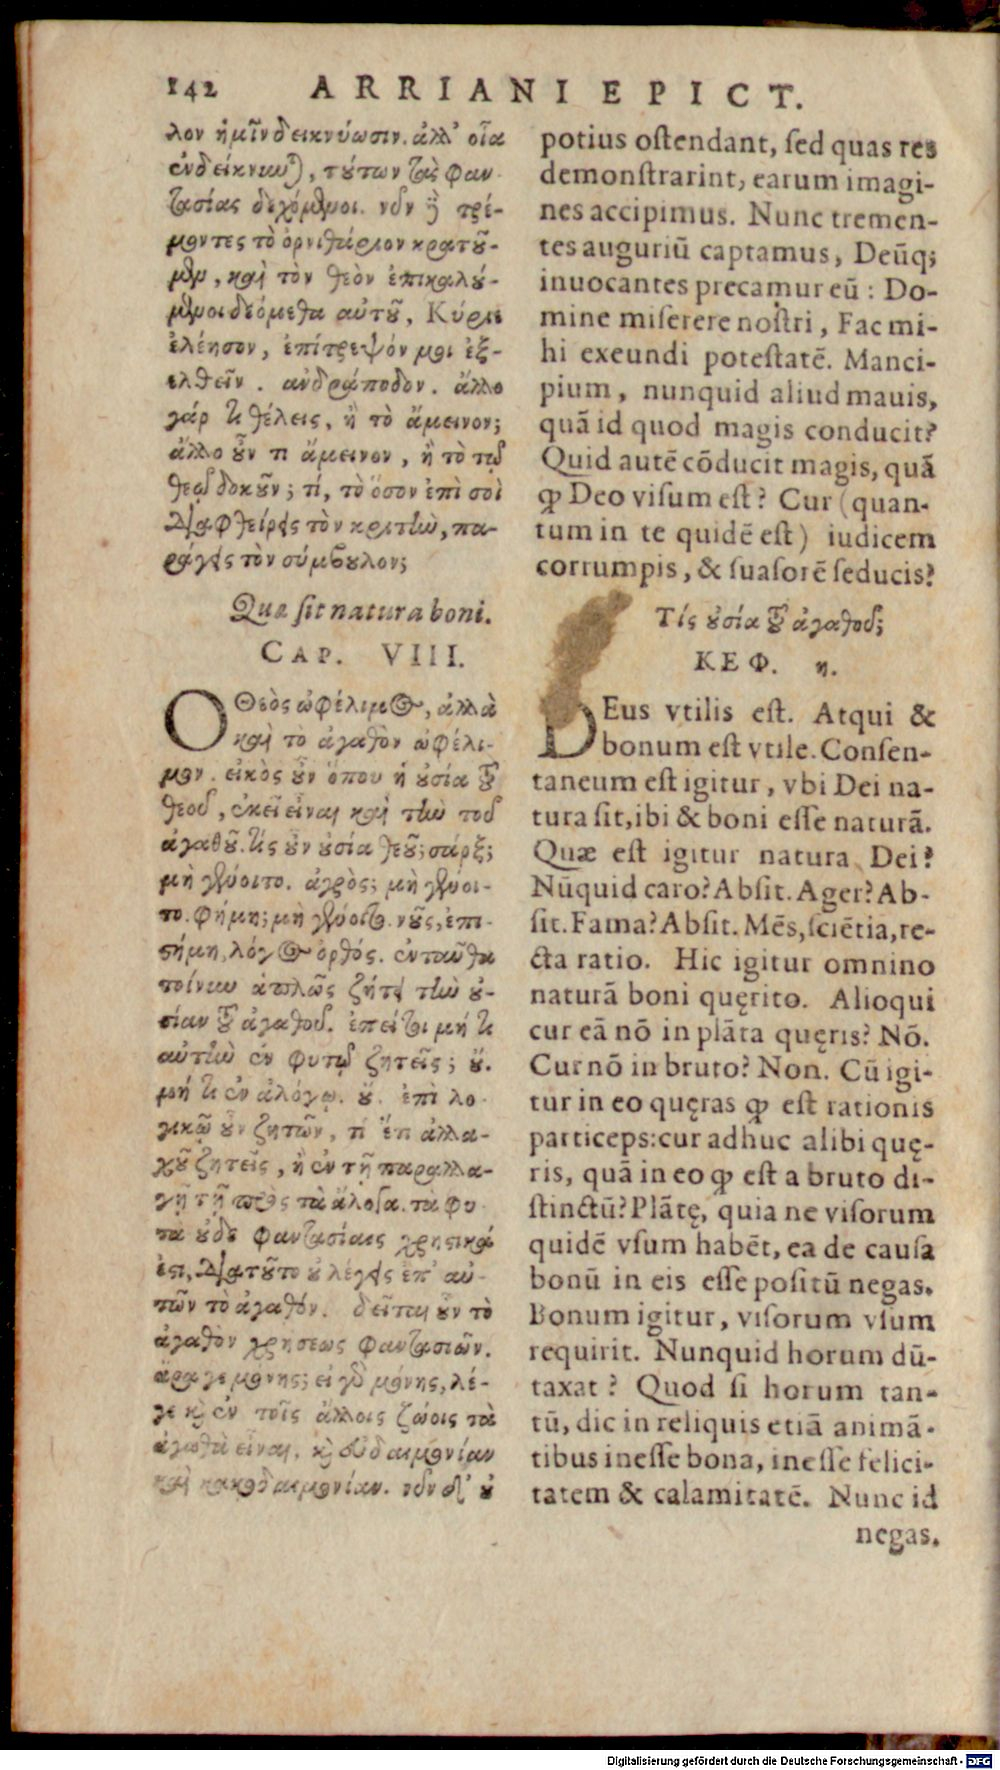 142 ARRIANI EPICT.
λον ἡμῖν δεικνύωσιν. ἀλλ' οἷα
ἐνδείκνυται, τούτων τὰς φαν-
τασίας δεχόμενοι. νῦν δὲ τρέ-
μοντες τὸ ὀρνιθάριον κρατοῦ-
μεν, καὶ τὸν θεὸν ἐπικαλού-
μενοι δεόμεθα αὐτοῦ, Κύριε
ἐλέησον, ἐπίτρεψόν μοι ἐξ-
ελθεῖν. ἀνδράποδον. ἄλλο
γάρ τι θέλεις, ἢ τὸ ἄμεινον;
ἄλλο οὖν τι ἄμεινον, ἢ τὸ τῷ
θεῷ δοκοῦν; τί, τὸ ὅσον ἐπὶ σοὶ
διαφθείρεις τὸν κριτὴν, πα-
ράγεις τὸν σύμβουλον;
Quæ sit natura boni.
CAP. VIII.
Ο Θεὸς ὠφέλιμος, ἀλλὰ
καὶ τὸ ἀγαθὸν ὠφέλι-
μον. εἰκὸς οὖν ὅπου ἡ οὐσία τοῦ
θεοῦ, ἐκεῖ εἶναι καὶ τὴν τοῦ
ἀγαθοῦ. τίς οὖν οὐσία θεοῦ; σάρξ;
μὴ γένοιτο. ἀγρὸς; μὴ γένοι-
το. φήμη; μὴ γένοιτο. νοῦς, ἐπι-
στήμη, λόγος ὀρθός. ἐνταῦθα
τοίνυν ἁπλῶς ζήτει τὴν οὐ-
σίαν τοῦ ἀγαθοῦ. ἐπεί τοι μή τι
αὐτὴν ἐν φυτῷ ζητεῖς; οὔ.
μή τι ἐν ἀλόγῳ. οὔ. ἐπὶ λο-
γικῷ οὖν ζητῶν, τί ἔτι ἀλλα-
χοῦ ζητεῖς, ἢ ἐν τῇ παραλλα-
γῇ τῇ πρὸς τὰ ἄλογα. τὰ φυ-
τὰ οὐδὲ φαντασίαις χρηστικά
ἐστι, διατοῦτο οὐ λέγεις ἐπ' αὐ-
τῶν τὸ ἀγαθόν. δεῖται οὖν τὸ
ἀγαθὸν χρήσεως φαντασιῶν.
ἆρά γε μόνης; εἰ γὰρ μόνης, λέ-
γε καὶ ἐν τοῖς ἄλλοις ζώοις τὰ
ἀγαθὰ εἶναι, καὶ εὐδαιμονίαν
καὶ κακοδαιμονίαν. νῦν δ' οὐ
potius ostendant, sed quas res
demonstrarint, earum imagi-
nes accipimus. Nunc tremen-
tes auguriū captamus, Deūq;
inuocantes precamur eū: Do-
mine miserere nostri, Fac mi-
hi exeundi potestatē. Manci-
pium, nunquid aliud mauis,
quā id quod magis conducit?
Quid autē cōducit magis, quā
ꝙ Deo visum est? Cur (quan-
tum in te quidē est) iudicem
corrumpis, & suasorē seducis?
Τίς οὐσία τοῦ ἀγαθοῦ;
ΚΕΦ. η.
DEus vtilis est. Atqui &
bonum est vtile. Consen-
taneum est igitur, vbi Dei na-
tura sit, ibi & boni esse naturā.
Quæ est igitur natura Dei?
Nūquid caro? Absit. Ager? Ab-
sit. Fama? Absit. Mēs, sciētia, re-
cta ratio. Hic igitur omnino
naturā boni quęrito. Alioqui
cur eā nō in plāta quęris? Nō.
Cur nō in bruto? Non. Cū igi-
tur in eo quęras ꝙ est rationis
particeps: cur adhuc alibi quę-
ris, quā in eo ꝙ est a bruto di-
stinctū? Plātę, quia ne visorum
quidē vsum habēt, ea de causa
bonū in eis esse positū negas.
Bonum igitur, visorum vsum
requirit. Nunquid horum dū-
taxat? Quod si horum tan-
tū, dic in reliquis etiā animā-
tibus inesse bona, inesse felici-
tatem & calamitatē. Nunc id
negas.
Digitalisierung gefördert durch die Deutsche Forschungsgemeinschaft - DFG